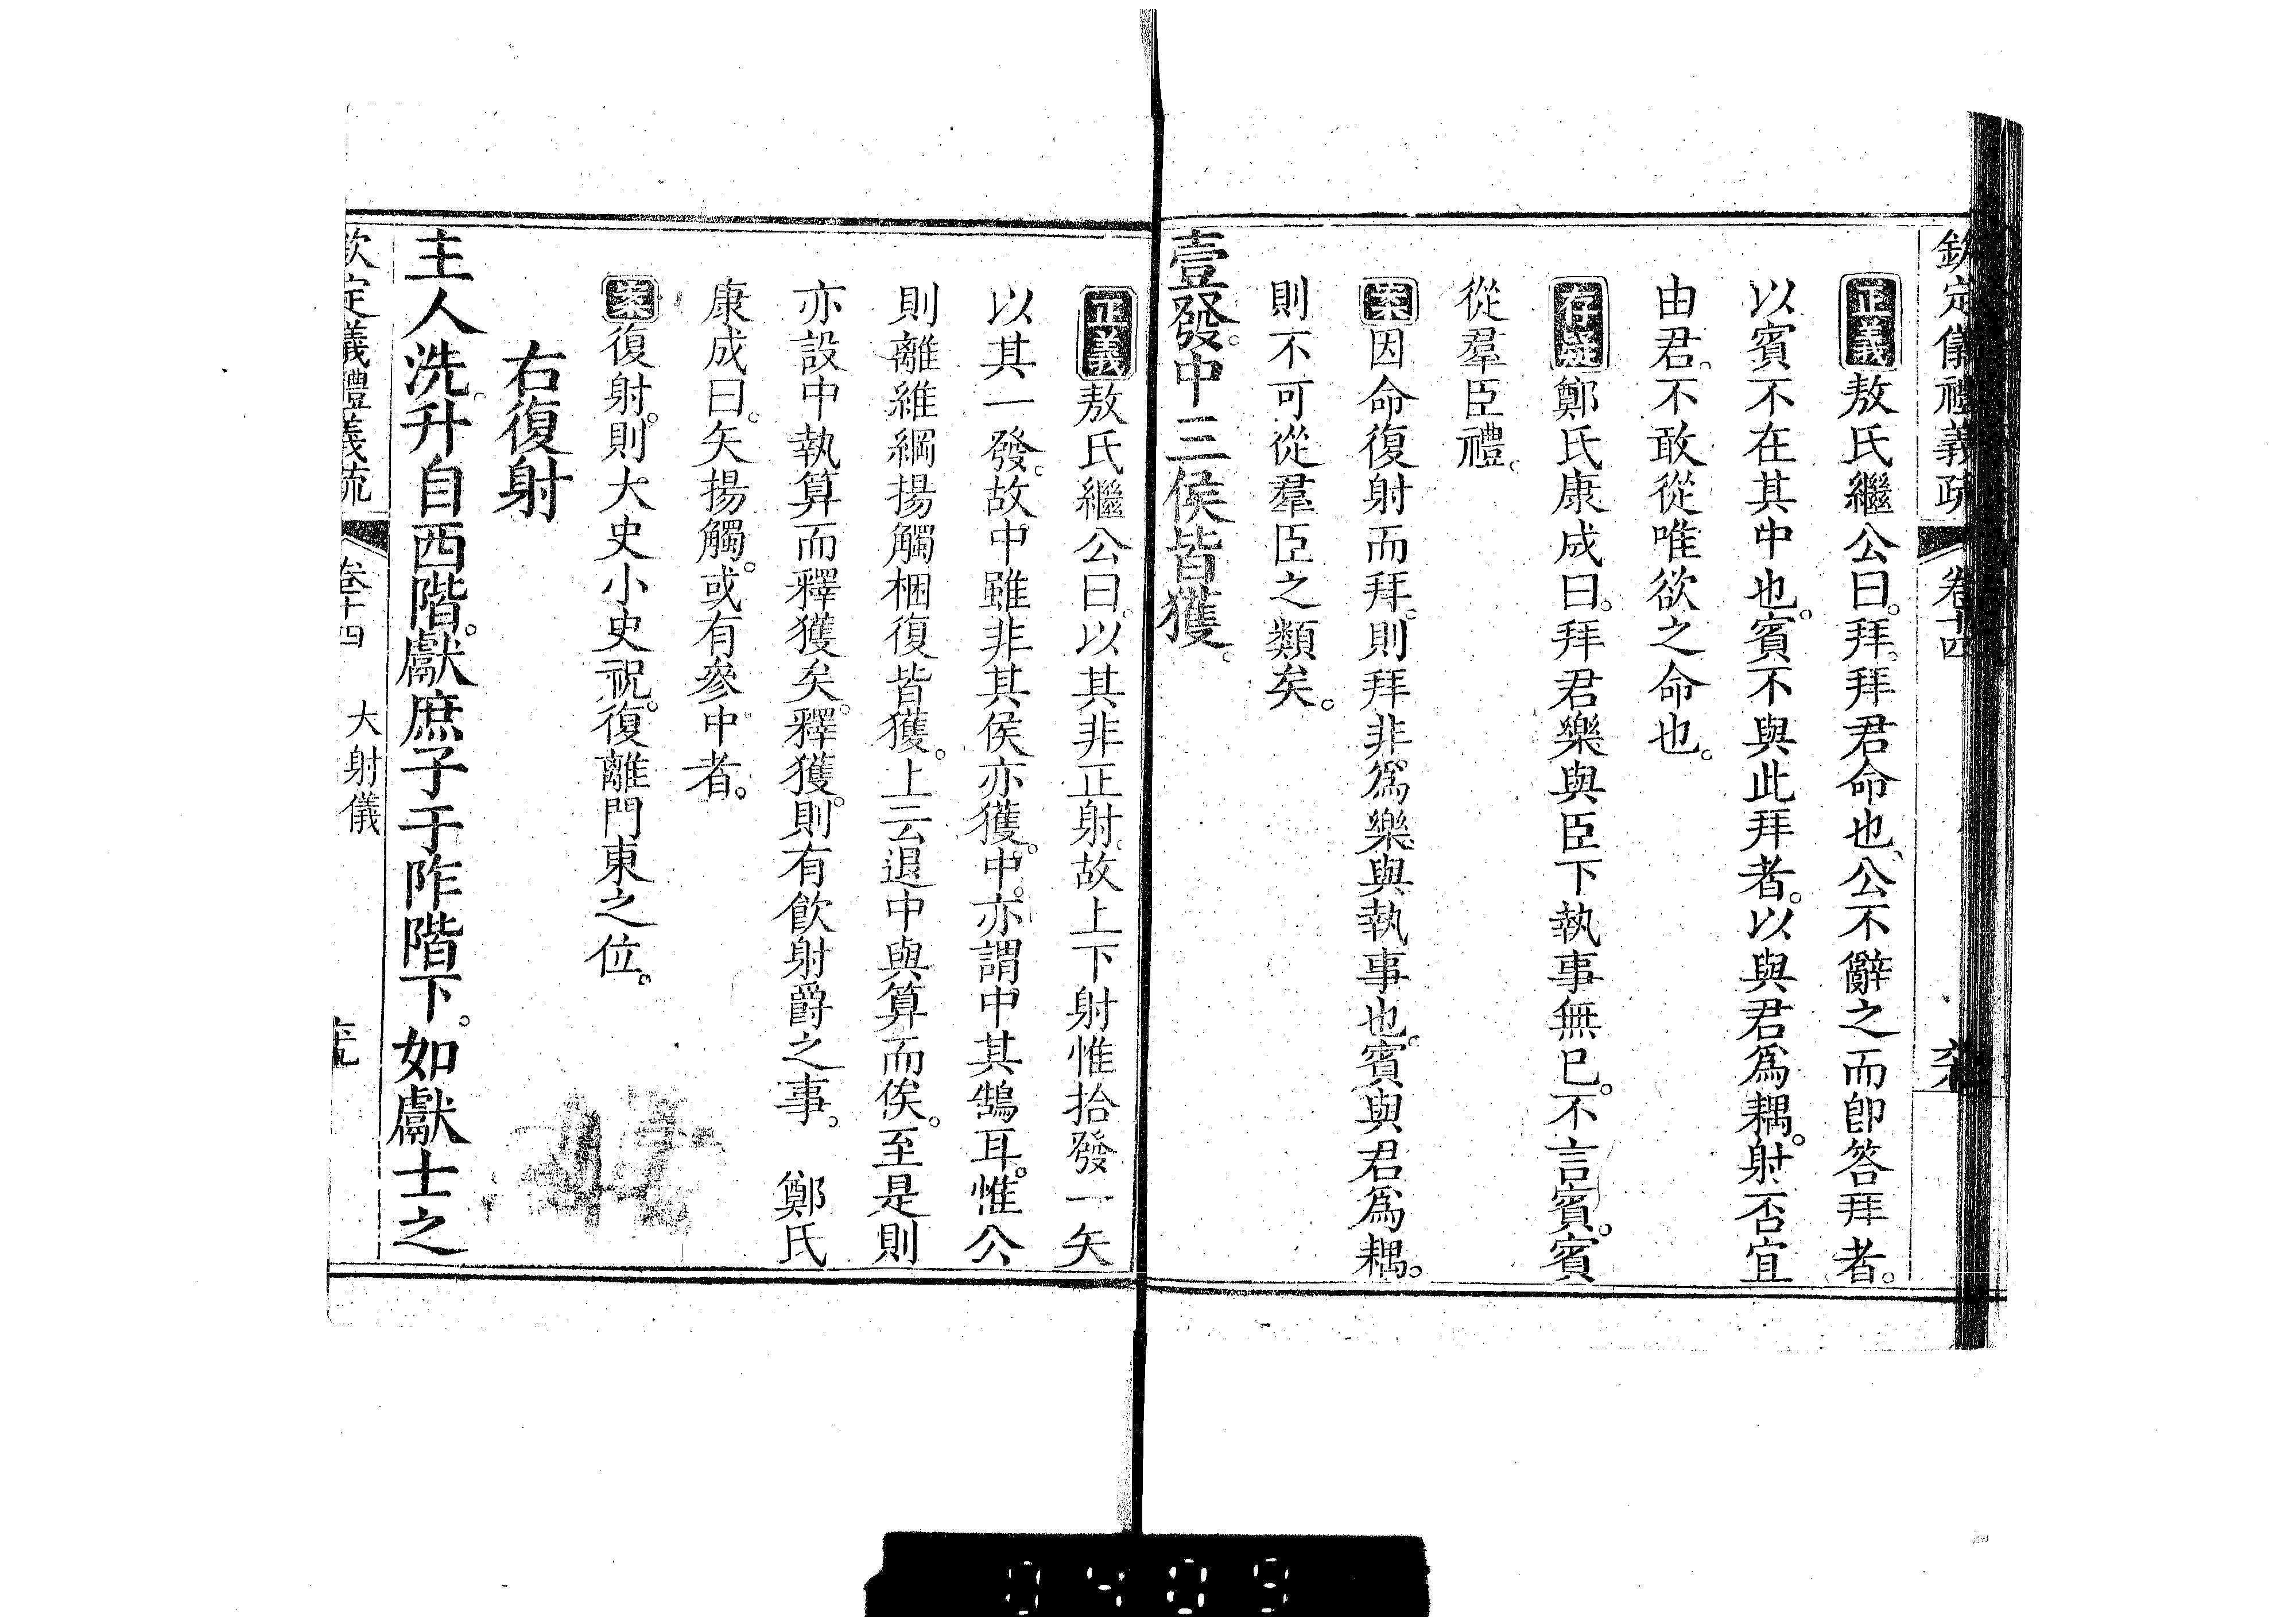 欽定儀禮義疏 卷十四
正義敖氏繼公曰。拜。拜君命也、公不辭之而卽答拜者。
以賓不在其中也。賓不與此拜者。以與君爲耦。射否宜
由君。不敢從唯欲之命也。
存疑鄭氏康成曰。拜君樂與臣下執事無已。不言賓。賓
從羣臣禮。
案因命復射而拜。則拜非爲樂與執事也。賓與君爲耦。
則不可從羣臣之類矣。
壹發。中三侯皆獲。
正義敖氏繼公曰。以其非正射。故上下射惟拾發一矢
以其一發。故中雖非其侯亦獲。中。亦謂中其鵠耳。惟公
則離維綱揚觸梱復皆獲。上云退中與算而俟。至是則
亦設中執算而釋獲矣。釋獲。則有飮射爵之事。 鄭氏
康成曰。矢揚觸。或有參中者。
案復射。則大史小史祝。復離門東之位。
右復射
主人洗。升自西階。獻庶子于阼階下。如獻士之
欽定儀禮義疏 卷十四 大射儀